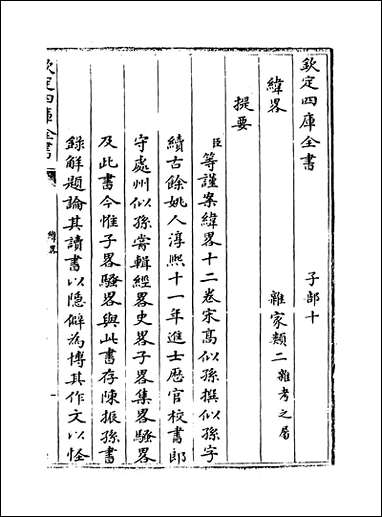 欽定四庫全書 子部十
緯畧 雜家類二雜考之屬
提要
臣等謹案緯畧十二卷宋髙似孫撰似孫字
續古餘姚人淳熙十一年進士歴官校書郎
守處州似孫嘗輯經畧史畧子畧集畧騷畧
及此書今惟子畧騷畧與此書存陳振孫書
録解題論其讀書以隠僻為博其作文以怪
欽定四庫全書
緯畧
一